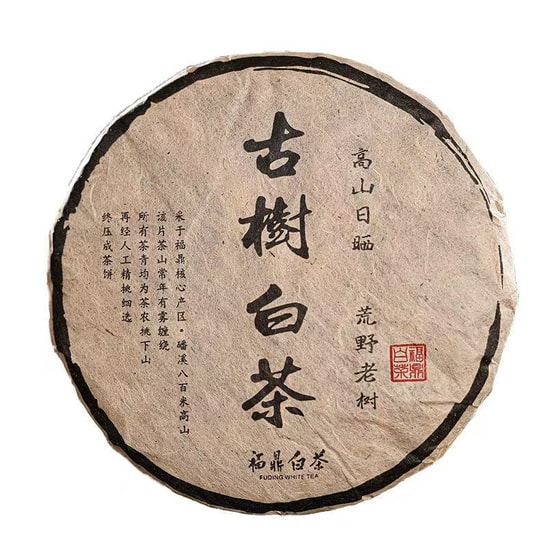 高山日晒 荒野老树
福鼎白茶
古樹白茶
采于福鼎核心产区·磻溪八百米高山
该片茶山常年有雾缠绕
所有茶青均为茶农挑下山
再经人工精挑细选
终压成茶饼
福鼎白茶
FUDING WHITE TEA